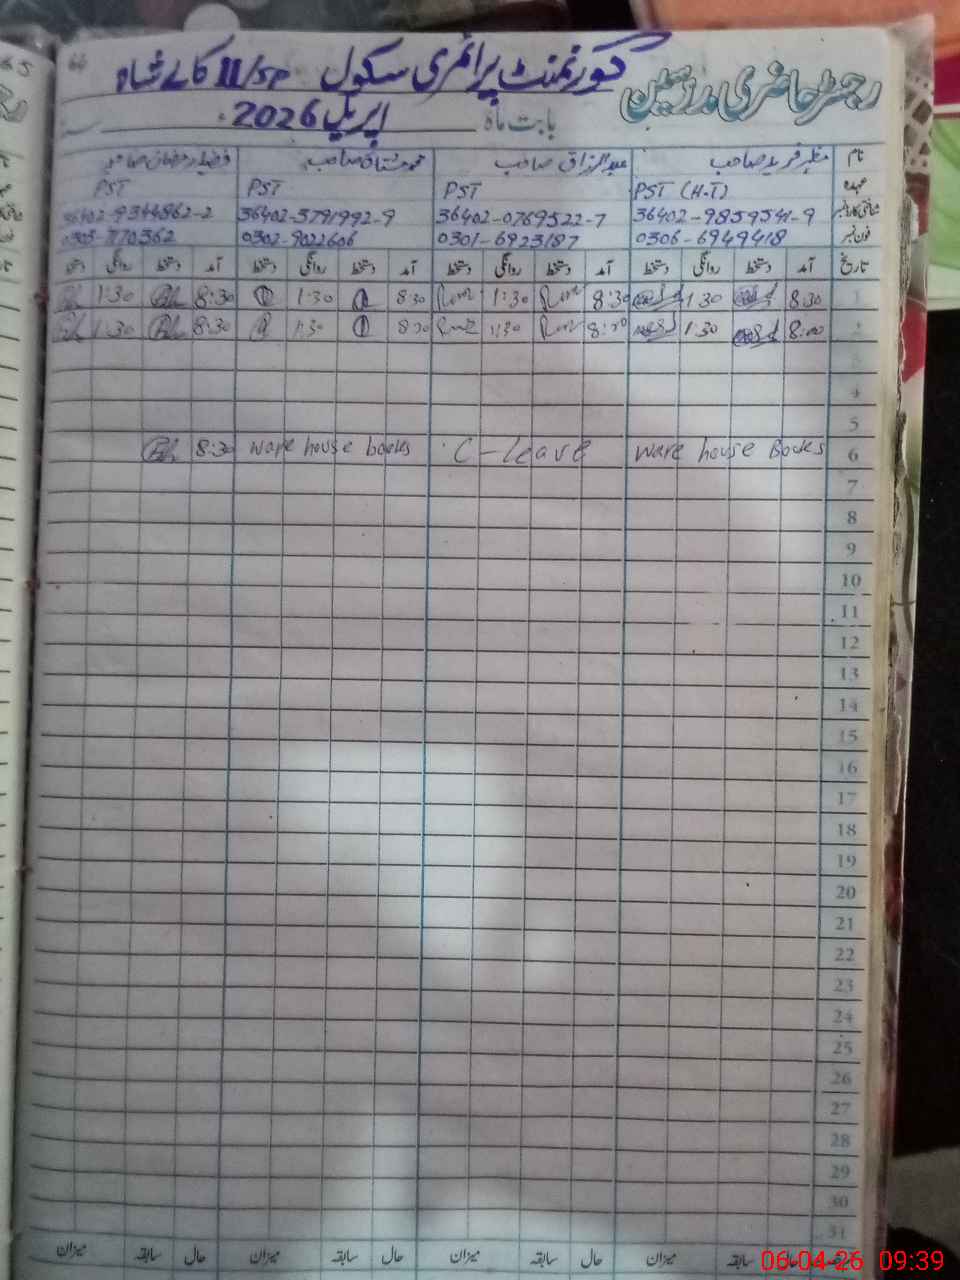 66
گورنمنٹ پرائمری سکول 11/SP کالے شاہ
رجسٹر حاضری مدرسین
بابت ماہ اپریل 2026
نام مظہر فرید صاحب عبدالرزاق صاحب محمد مشتاق صاحب
عہدہ PST (H.T) PST PST PST
شناختی کارڈ نمبر 36402-9859541-9 36402-0769522-7 36402-3791992-9 36402-9344862-2
فون نمبر 0306-6949418 0301-6923187 0302-9022606
تاریخ آمد دستخط روانگی دستخط آمد دستخط روانگی دستخط آمد دستخط روانگی دستخط آمد دستخط روانگی دستخط
1 8:30 1:30 8:30 1:30 8:30 1:30 8:30 1:30
2 8:00 1:30 1:30 1:30 8:30 1:30
3
4
5
6 ware house Books C-leave ware house books 8:30
7
8
9
10
11
12
13
14
15
16
17
18
19
20
21
22
23
24
25
26
27
28
29
30
31
حال سابقہ میزان حال سابقہ میزان حال سابقہ میزان حال سابقہ میزان
06-04-26 09:39